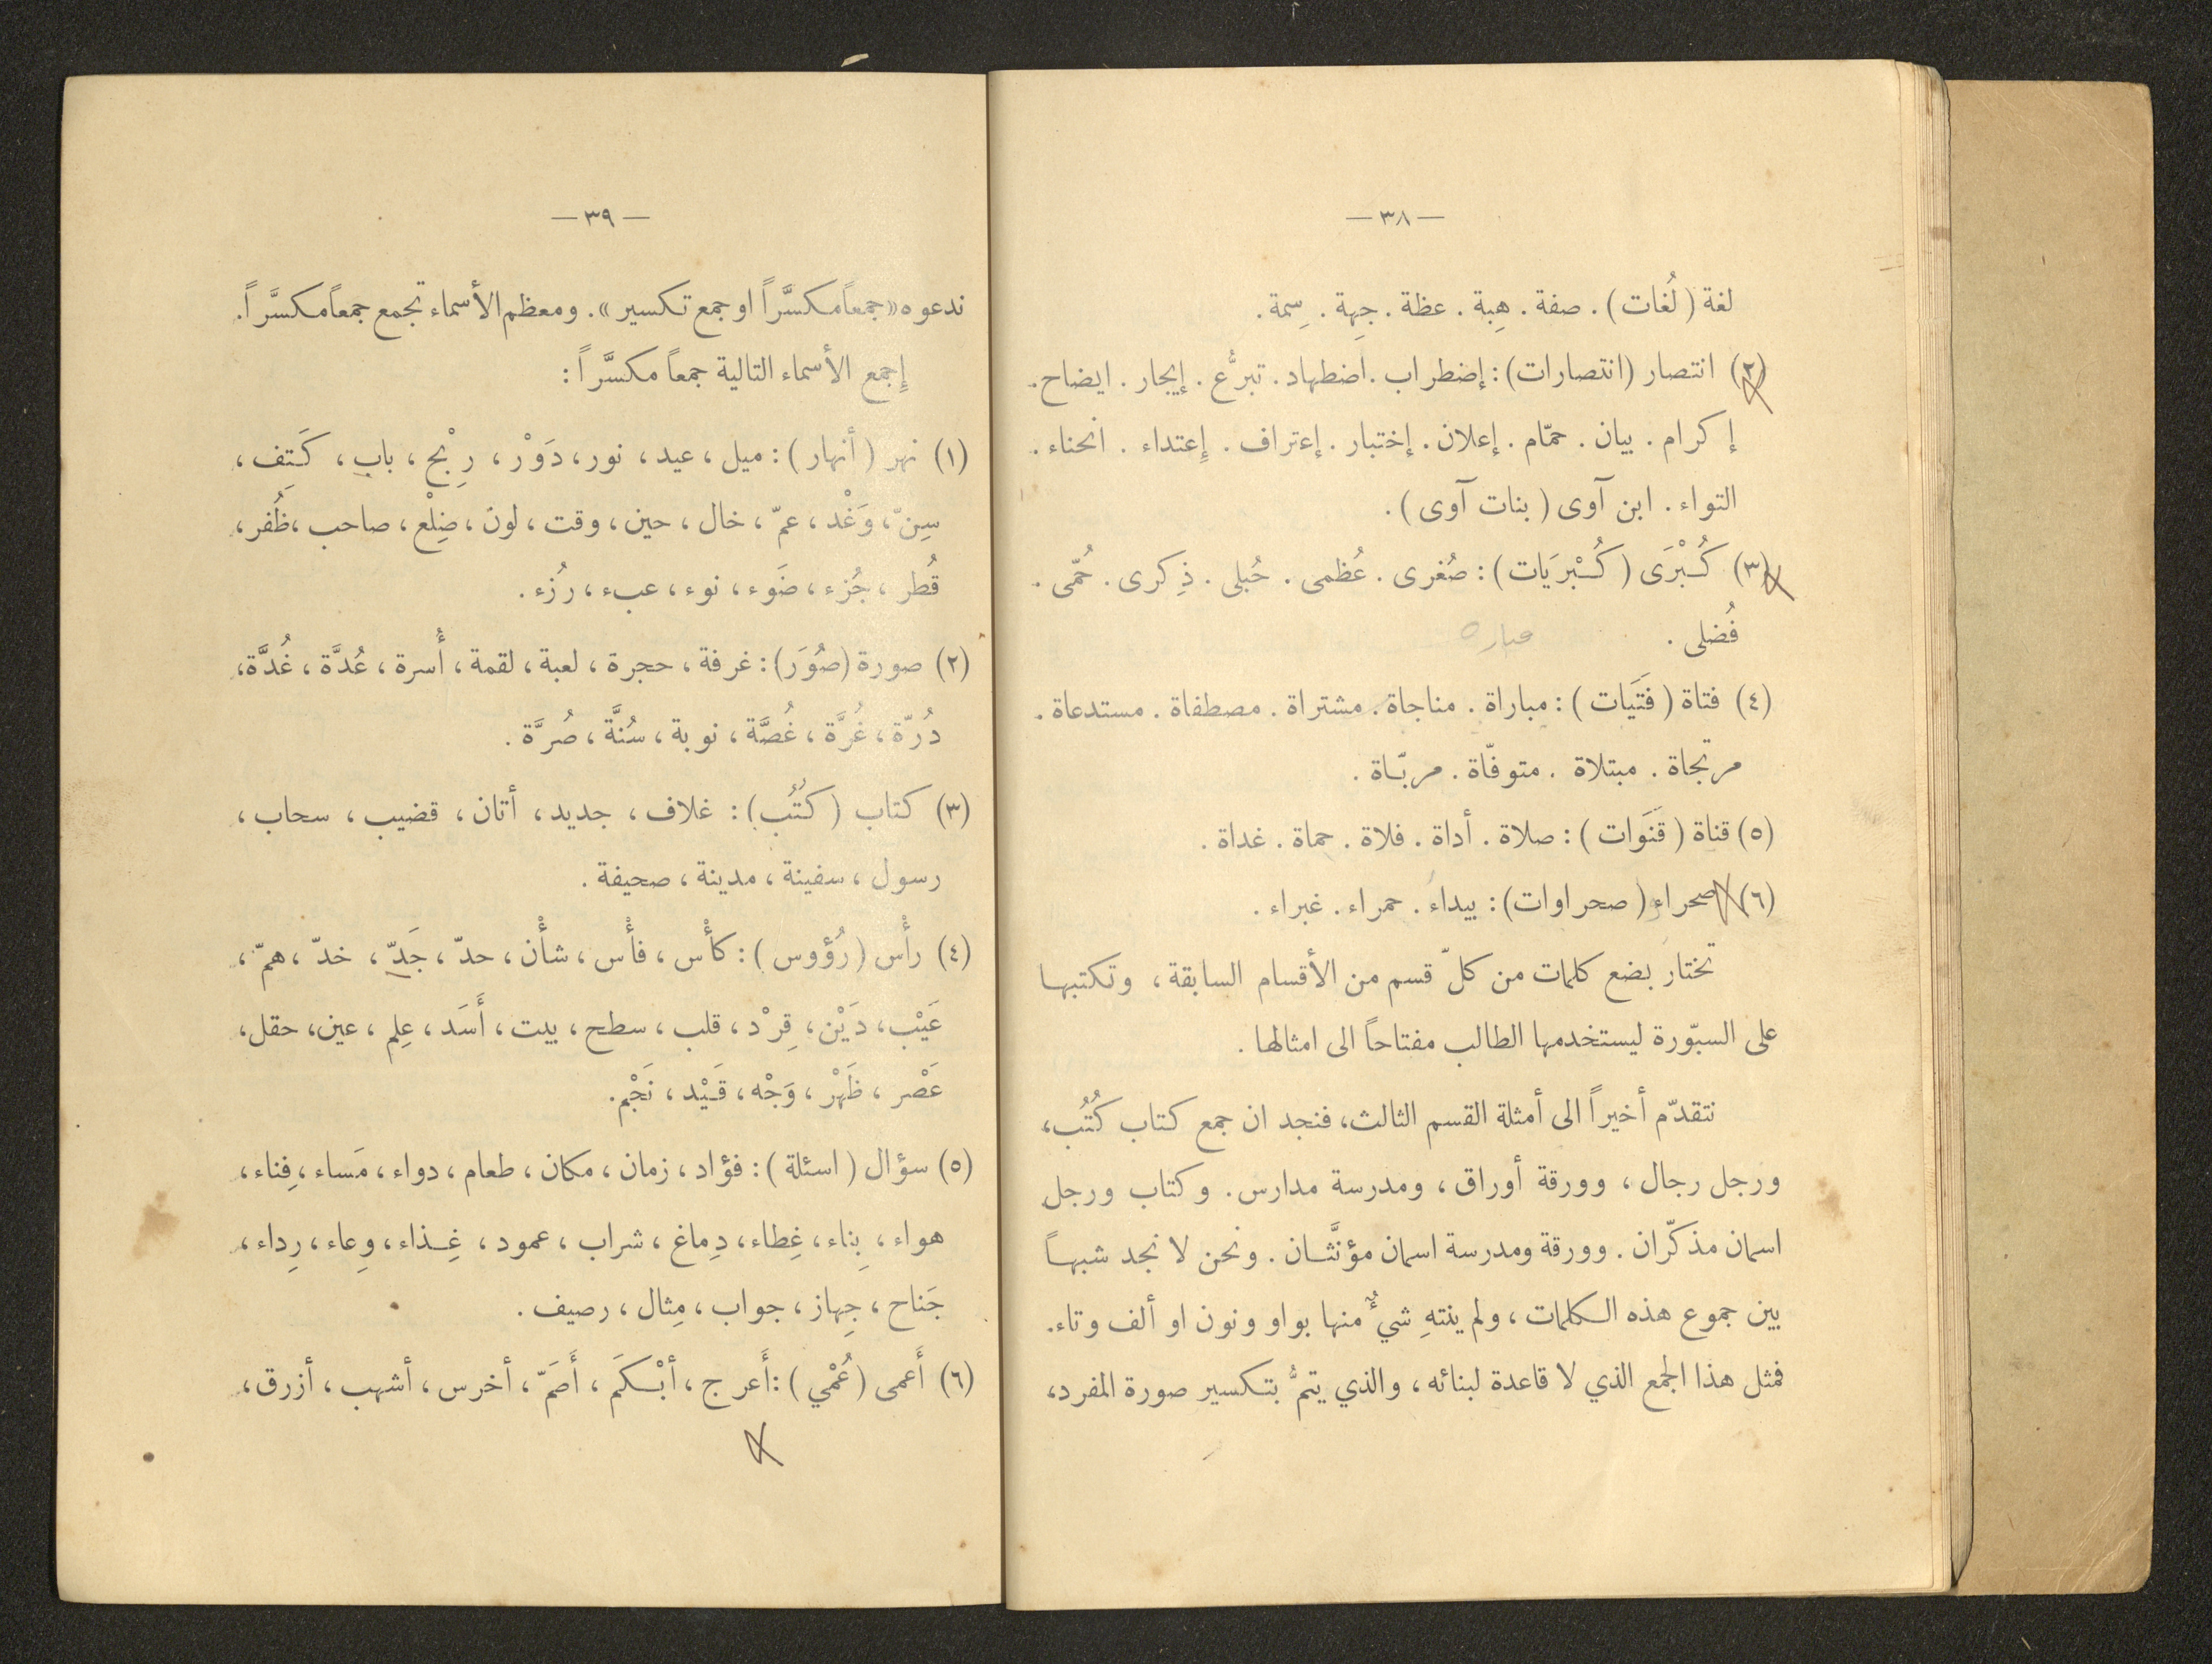 — ٣٨ —
لغة (لُغات). صفة. هِبة. عظة. جِهة. سِمة.
(٢) انتصار (انتصارات): إضطراب. اضطهاد. تبرُّع. إيجار. ايضاح.
إكرام. بيان. حمّام. إعلان. إختبار. إعتراف. إِعتداء. انحناء.
التواء. ابن آوى (بنات آوى).
(٣) كُبْرَى (كُبْرَيَات): صُغرى. عُظمى. حُبلى. ذِكرى. حُمّى.
فُضلى.
(٤) فتاة (فَتَيَات): مباراة. مناجاة. مشتراة. مصطفاة. مستدعاة.
مرتجاة. مبتلاة. متوفّاة. مربّاة.
(٥) قناة (قنَوات): صلاة. أداة. فلاة. حماة. غداة.
(٦) صحراء (صحراوات): بيداء. حمراء. غبراء.
تختار بضع كلمات من كلّ قسم من الأقسام السابقة، وتكتبها
على السبّورة ليستخدمها الطالب مفتاحاً الى امثالها.
نتقدّم أخيراً الى أمثلة القسم الثالث، فنجد ان جمع كتاب كُتُب،
ورجل رجال، وورقة أوراق، ومدرسة مدارس. وكتاب ورجل
اسمان مذكّران. وورقة ومدرسة اسمان مؤنثَّان. ونحن لا نجد شبهاً
بين جموع هذه الكلمات، ولم ينتهِ شيءٌ منها بواو ونون او ألف وتاء.
فمثل هذا الجمع الذي لا قاعدة لبنائه، والذي يتمُّ بتكسير صورة المفرد،
— ٣٩ —
ندعوه «جمعاً مكسَّراً او جمع تكسير». ومعظم الأسماء تجمع جمعاً مكسَّراً.
إِجمع الأسماء التالية جمعاً مكسَّراً:
(١) نهر (أنهار): ميل، عيد، نور، دَوْر، رِبْح، باب، كَتِف،
سِنّ، وَغْد، عمّ، خال، حين، وقت، لون، ضِلْع، صاحب، ظُفر،
قُطر، جُزء، ضَوء، نوء، عبء، رُزء.
(٢) صورة (صُوَر): غرفة، حجرة، لعبة، لقمة، أُسرة، عُدَّة، غُدَّة،
دُرّة، غُرَّة، غُصَّة، نوبة، سُنَّة، صُرَّة.
(٣) كتاب (كتُب): غلاف، جديد، أتان، قضيب، سحاب،
رسول، سفينة، مدينة، صحيفة.
(٤) رأْس (رُؤوس): كأْس، فأْس، شأْن، حدّ، جَدّ، خدّ، همّ،
عَيْب، دَيْن، قِرْد، قلب، سطح، بيت، أَسَد، عِلم، عين، حقل،
عَصْر، ظَهْر، وَجْه، قَيْد، نَجْم.
(٥) سؤال (اسئلة): فؤاد، زمان، مكان، طعام، دواء، مَساء، فِناء،
هواء، بِناء، غِطاء، دِماغ، شراب، عمود، غِذاء، وِعاء، رِداء،
جَناح، جِهاز، جواب، مِثال، رصيف.
(٦) أَعمى (عُمْي): أَعرج، أبْكَم، أَصَمّ، أخرس، أشهب، أزرق،